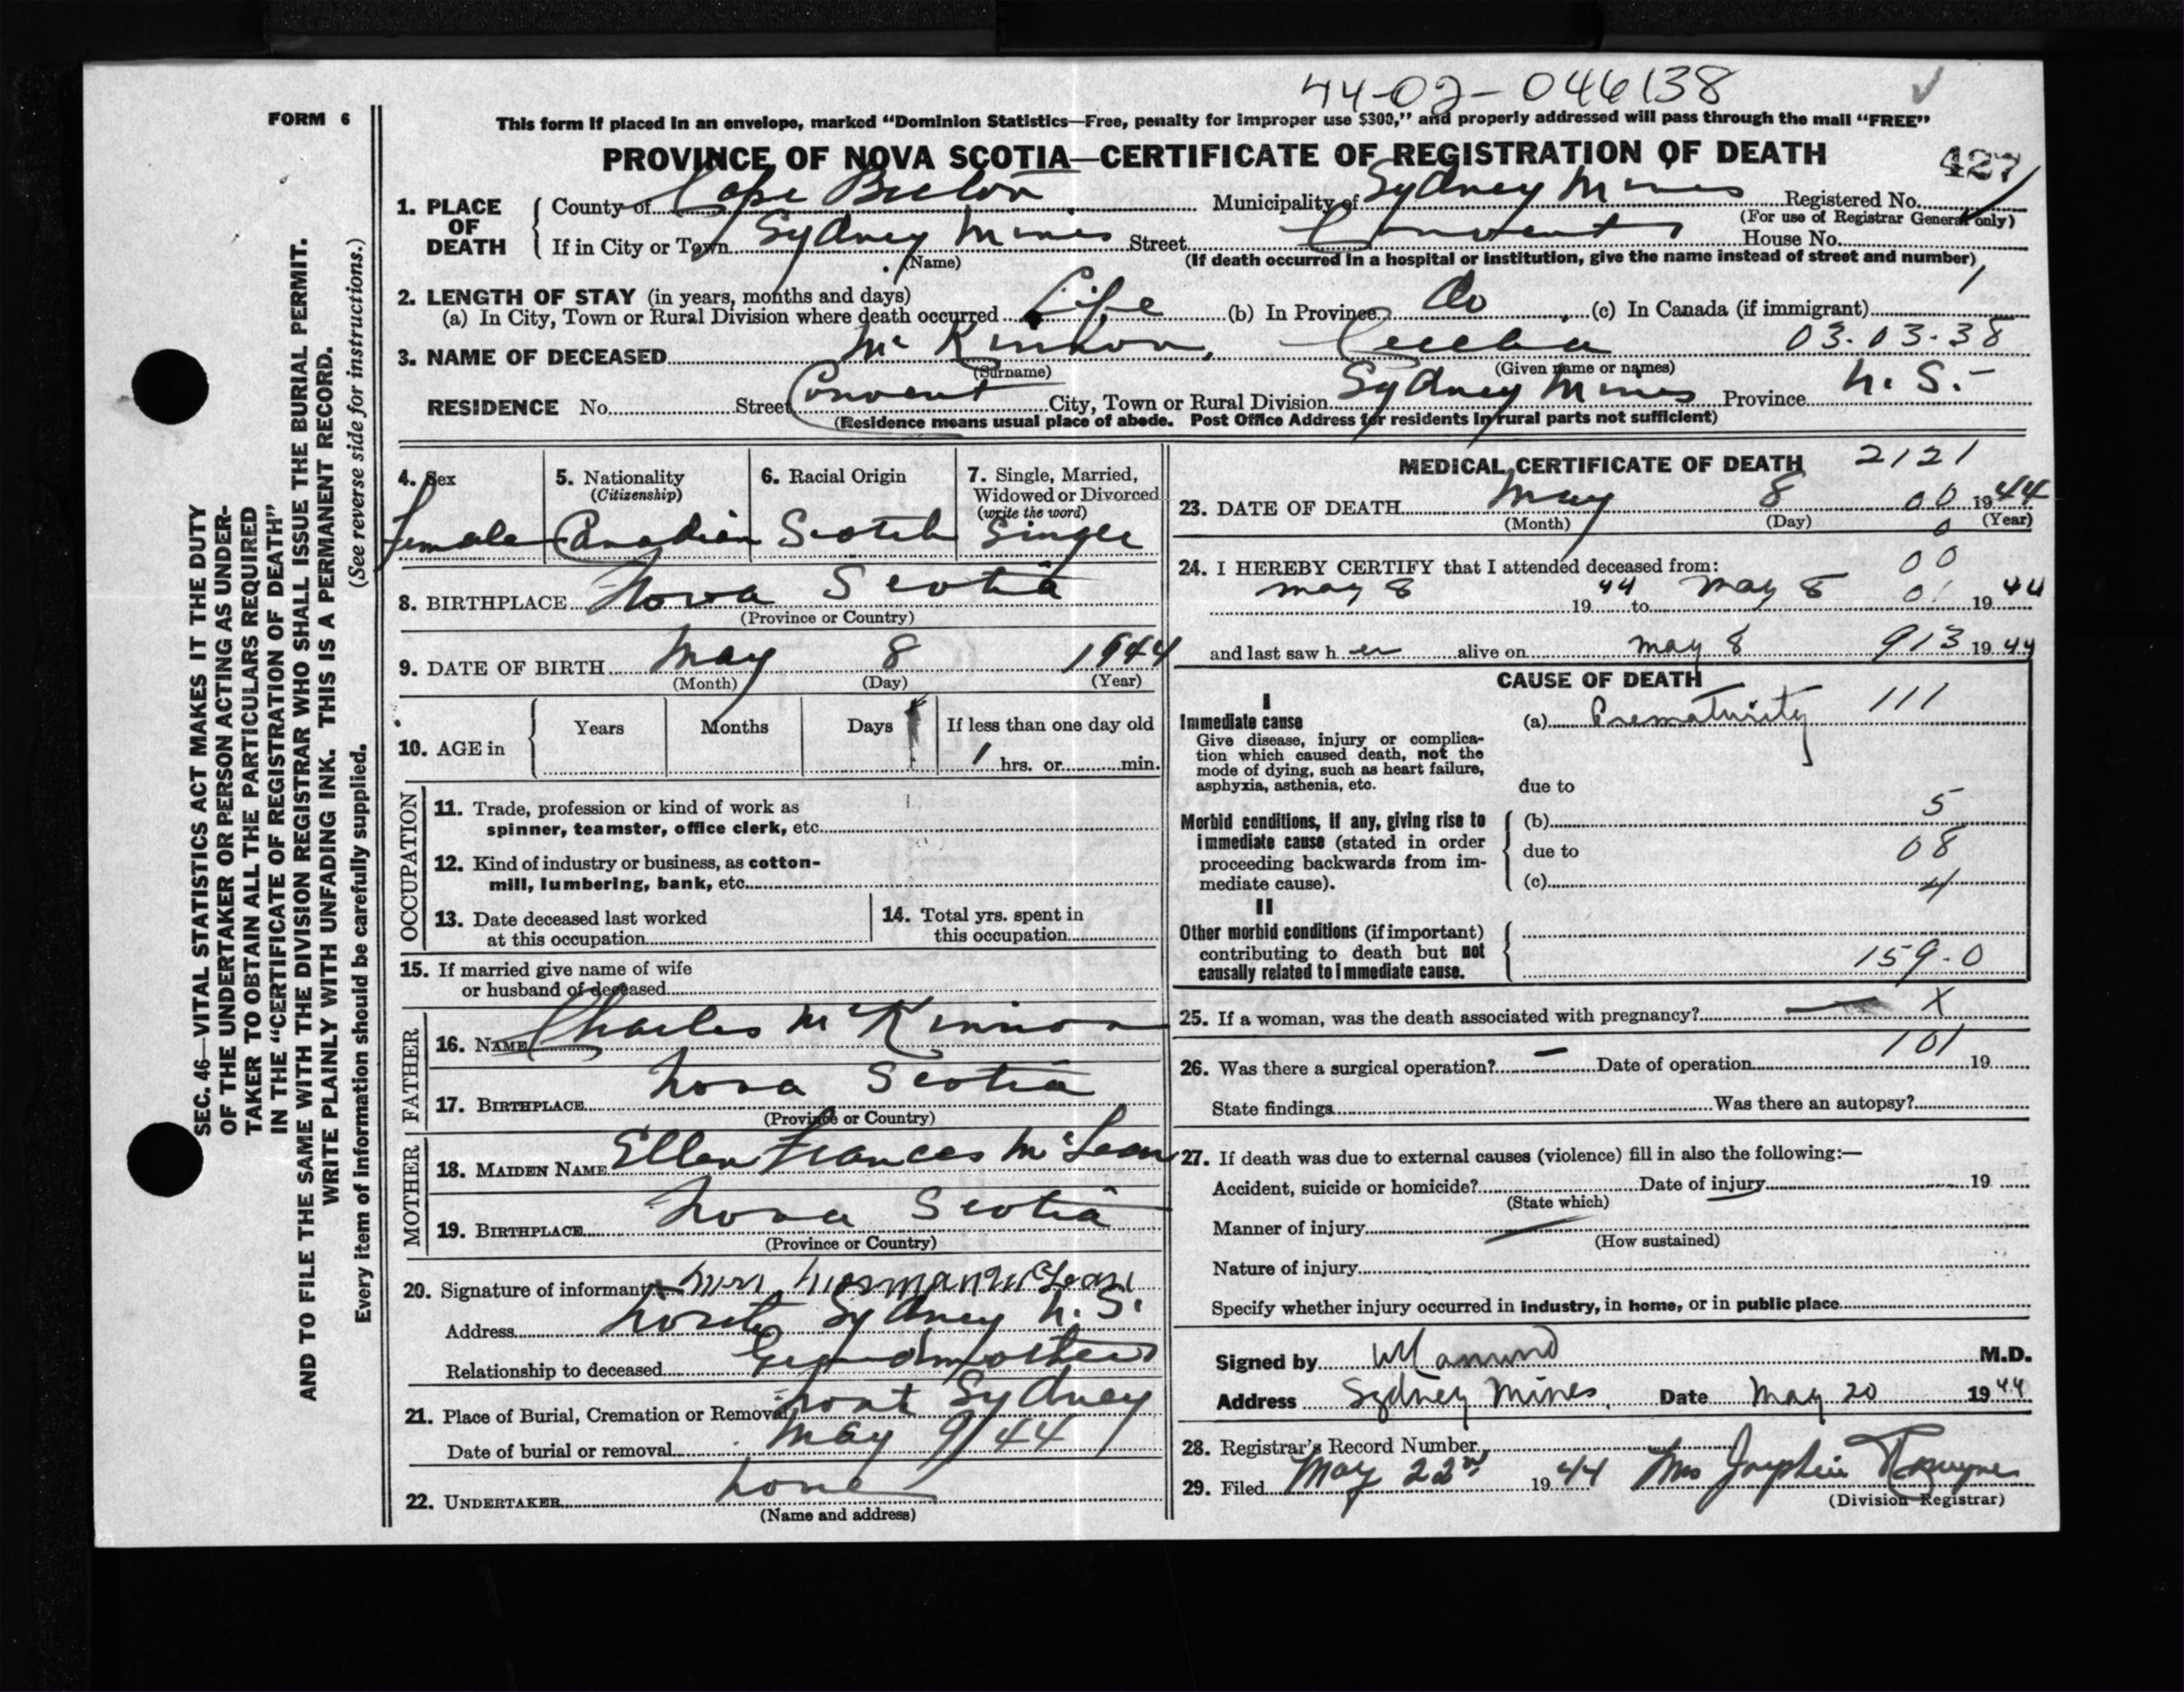 44-02-046138
FORM 6
This form if placed in an envelope, marked "Dominion Statistics—Free, penalty for improper use $300," and properly addressed will pass through the mail "FREE"
PROVINCE OF NOVA SCOTIA—CERTIFICATE OF REGISTRATION OF DEATH
427
1. PLACE OF DEATH
County of Cape Breton Municipality of Sydney Mines Registered No.
(For use of Registrar General only)
If in City or Town Sydney Mines Street Convent House No.
(Name) (If death occurred in a hospital or institution, give the name instead of street and number)
2. LENGTH OF STAY (in years, months and days) 1
(a) In City, Town or Rural Division where death occurred Life (b) In Province Do (c) In Canada (if immigrant)
3. NAME OF DECEASED McKinnon, Cecelia 03.03.38
(Surname) (Given name or names)
RESIDENCE No. Street Convent City, Town or Rural Division Sydney Mines Province N.S.
(Residence means usual place of abode. Post Office Address for residents in rural parts not sufficient)
4. Sex
Female
5. Nationality
(Citizenship)
Canadian
6. Racial Origin
Scotch
7. Single, Married,
Widowed or Divorced
(write the word)
Single
8. BIRTHPLACE Nova Scotia
(Province or Country)
9. DATE OF BIRTH May 8 1944
(Month) (Day) (Year)
10. AGE in Years Months Days If less than one day old
1 hrs. or min.
OCCUPATION
11. Trade, profession or kind of work as
spinner, teamster, office clerk, etc.
12. Kind of industry or business, as cotton-
mill, lumbering, bank, etc.
13. Date deceased last worked
at this occupation
14. Total yrs. spent in
this occupation
15. If married give name of wife
or husband of deceased
FATHER
16. NAME Charles McKinnon
17. BIRTHPLACE Nova Scotia
(Province or Country)
MOTHER
18. MAIDEN NAME Ellen Frances McLean
19. BIRTHPLACE Nova Scotia
(Province or Country)
20. Signature of informant Mrs. Norman McLean
Address North Sydney N.S.
Relationship to deceased Grandmother
21. Place of Burial, Cremation or Removal North Sydney
Date of burial or removal May 9/44
22. UNDERTAKER None
(Name and address)
MEDICAL CERTIFICATE OF DEATH 2121
23. DATE OF DEATH May 8 00 1944
(Month) (Day) 0 (Year)
24. I HEREBY CERTIFY that I attended deceased from: 00
May 8 1944 to May 8 01 1944
and last saw her alive on May 8 913 1944
CAUSE OF DEATH
I
Immediate cause
Give disease, injury or complica-
tion which caused death, not the
mode of dying, such as heart failure,
asphyxia, asthenia, etc.
(a) Prematurity 111
due to
Morbid conditions, if any, giving rise to
immediate cause (stated in order
proceeding backwards from im-
mediate cause).
(b) 5
due to 08
(c) 4
II
Other morbid conditions (if important)
contributing to death but not
causally related to immediate cause.
159.0
25. If a woman, was the death associated with pregnancy? — X
26. Was there a surgical operation? — Date of operation 101 19
State findings Was there an autopsy?
27. If death was due to external causes (violence) fill in also the following:—
Accident, suicide or homicide? Date of injury 19
(State which)
Manner of injury
(How sustained)
Nature of injury
Specify whether injury occurred in industry, in home, or in public place
Signed by M.D.
Address Sydney Mines. Date May 20 1944
28. Registrar's Record Number
29. Filed May 22nd 1944 Mrs
(Division Registrar)
SEC. 46—VITAL STATISTICS ACT MAKES IT THE DUTY
OF THE UNDERTAKER OR PERSON ACTING AS UNDER-
TAKER TO OBTAIN ALL THE PARTICULARS REQUIRED
IN THE "CERTIFICATE OF REGISTRATION OF DEATH"
AND TO FILE THE SAME WITH THE DIVISION REGISTRAR WHO SHALL ISSUE THE BURIAL PERMIT.
WRITE PLAINLY WITH UNFADING INK. THIS IS A PERMANENT RECORD.
(See reverse side for instructions.)
Every item of information should be carefully supplied.